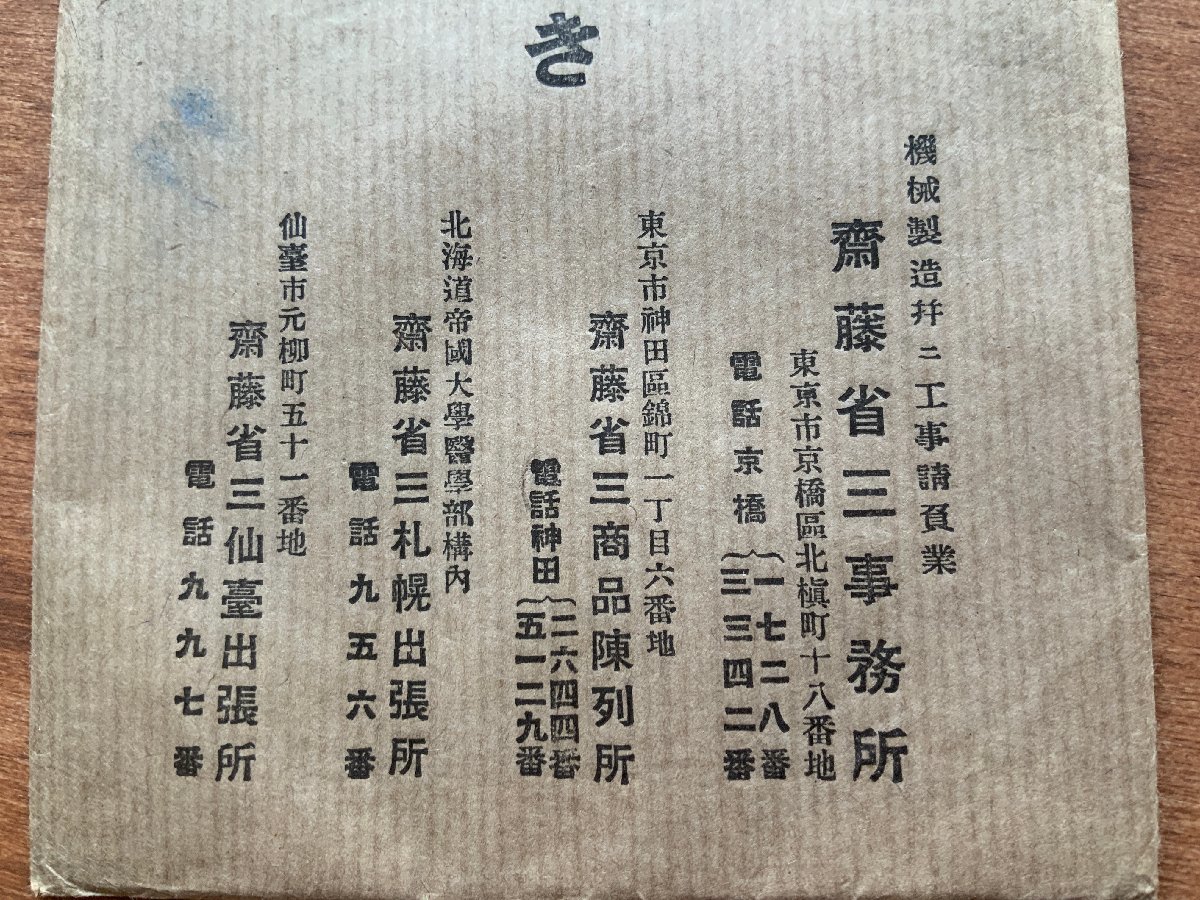 き
機械製造幷ニ工事請負業
齋藤省三事務所
東京市京橋區北槇町十八番地
電話京橋
一七二八番
三三四二番
東京市神田區錦町一丁目六番地
齋藤省三商品陳列所
電話神田
二六四四番
五一二九番
北海道帝國大學醫學部構內
齋藤省三札幌出張所
電話九五六番
仙臺市元柳町五十一番地
齋藤省三仙臺出張所
電話九九七番